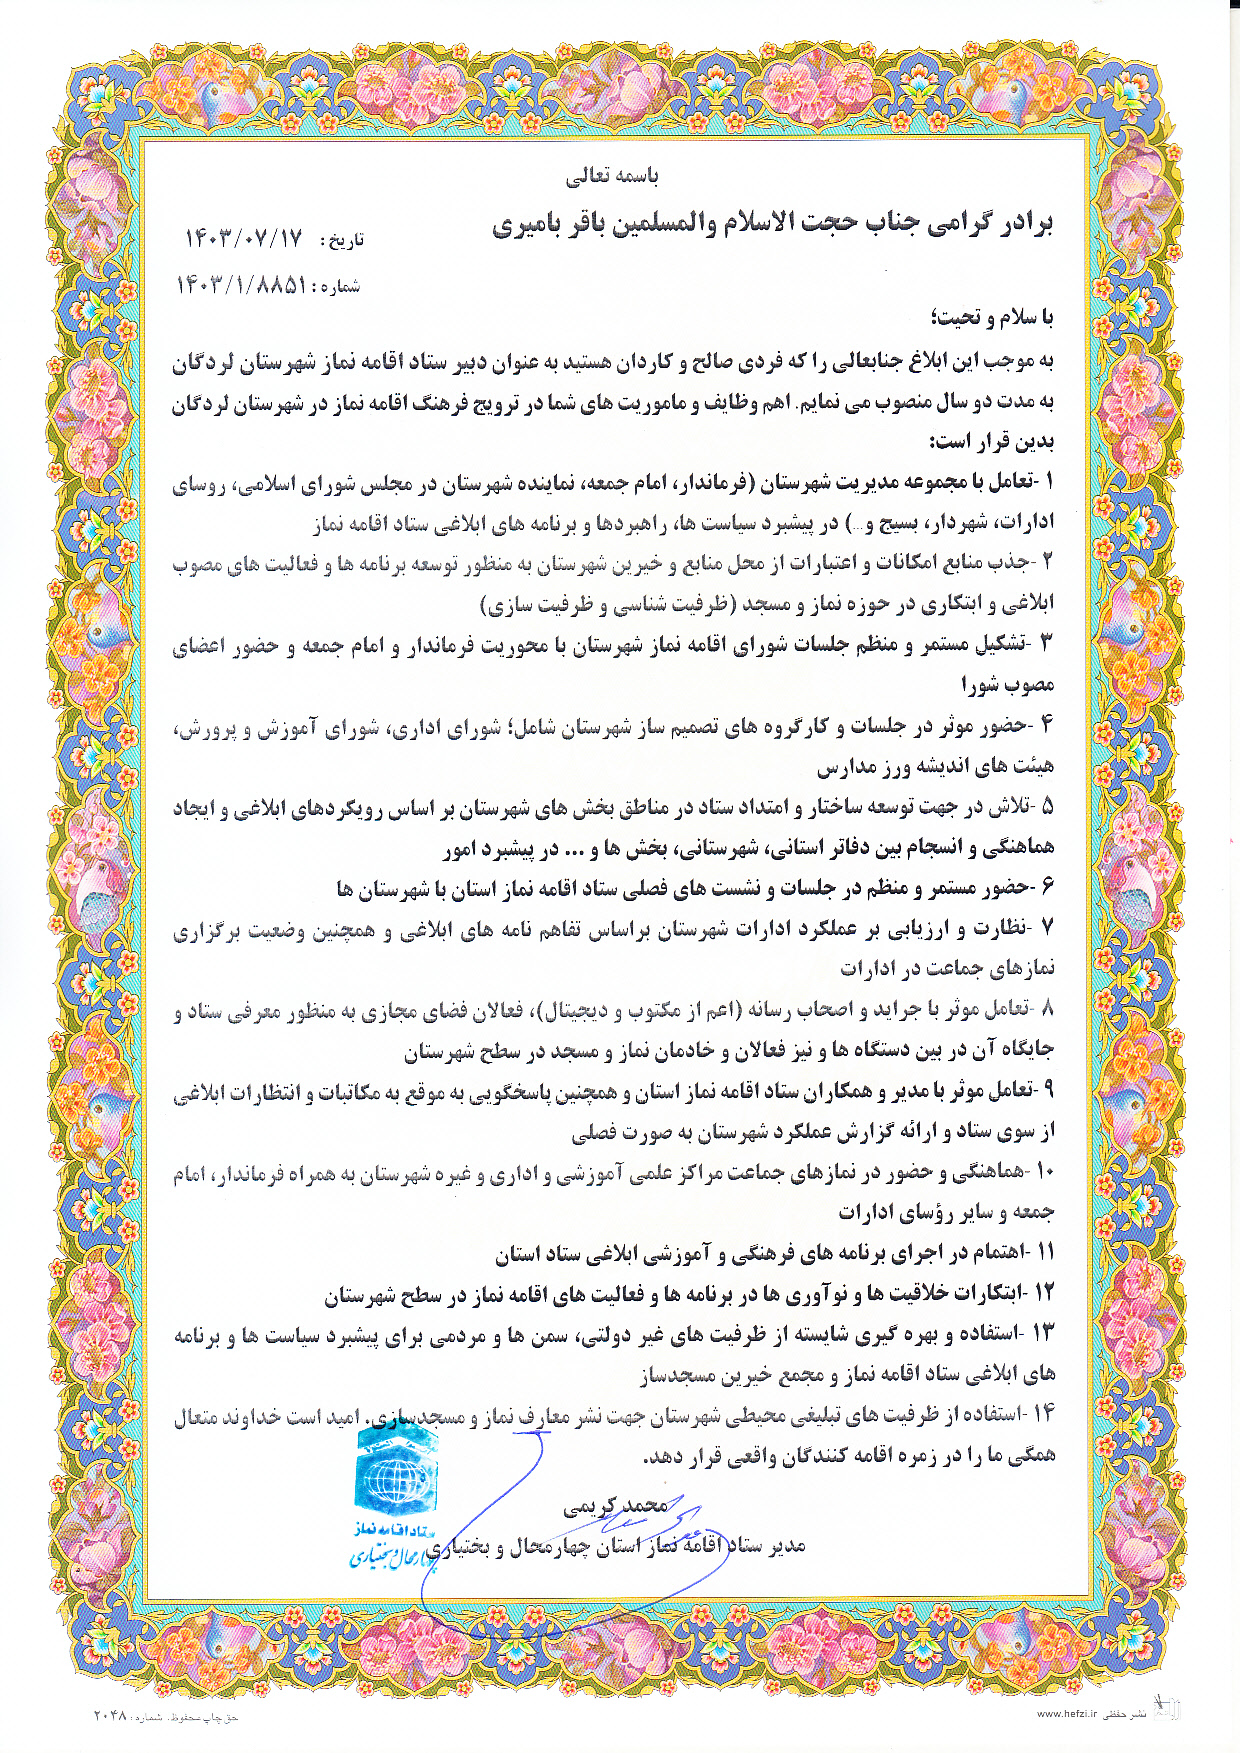 باسمه تعالی
برادر گرامی جناب حجت الاسلام والمسلمین باقر بامیری
تاریخ: ۱۴۰۳/۰۷/۱۷
شماره: ۱۴۰۳/۱/۸۸۵۱
با سلام و تحیت؛
به موجب این ابلاغ جنابعالی را که فردی صالح و کاردان هستید به عنوان دبیر ستاد اقامه نماز شهرستان لردگان
به مدت دو سال منصوب می نمایم. اهم وظایف و ماموریت های شما در ترویج فرهنگ اقامه نماز در شهرستان لردگان
بدین قرار است:
۱ -تعامل با مجموعه مدیریت شهرستان (فرماندار، امام جمعه، نماینده شهرستان در مجلس شورای اسلامی، روسای
ادارات، شهردار، بسیج و...) در پیشبرد سیاست ها، راهبردها و برنامه های ابلاغی ستاد اقامه نماز
۲ -جذب منابع امکانات و اعتبارات از محل منابع و خیرین شهرستان به منظور توسعه برنامه ها و فعالیت های مصوب
ابلاغی و ابتکاری در حوزه نماز و مسجد (ظرفیت شناسی و ظرفیت سازی)
۳ -تشکیل مستمر و منظم جلسات شورای اقامه نماز شهرستان با محوریت فرماندار و امام جمعه و حضور اعضای
مصوب شورا
۴ -حضور موثر در جلسات و کارگروه های تصمیم ساز شهرستان شامل؛ شورای اداری، شورای آموزش و پرورش،
هیئت های اندیشه ورز مدارس
۵ -تلاش در جهت توسعه ساختار و امتداد ستاد در مناطق بخش های شهرستان بر اساس رویکردهای ابلاغی و ایجاد
هماهنگی و انسجام بین دفاتر استانی، شهرستانی، بخش ها و ... در پیشبرد امور
۶ -حضور مستمر و منظم در جلسات و نشست های فصلی ستاد اقامه نماز استان با شهرستان ها
۷ -نظارت و ارزیابی بر عملکرد ادارات شهرستان براساس تفاهم نامه های ابلاغی و همچنین وضعیت برگزاری
نمازهای جماعت در ادارات
۸ -تعامل موثر با جراید و اصحاب رسانه (اعم از مکتوب و دیجیتال)، فعالان فضای مجازی به منظور معرفی ستاد و
جایگاه آن در بین دستگاه ها و نیز فعالان و خادمان نماز و مسجد در سطح شهرستان
۹ -تعامل موثر با مدیر و همکاران ستاد اقامه نماز استان و همچنین پاسخگویی به موقع به مکاتبات و انتظارات ابلاغی
از سوی ستاد و ارائه گزارش عملکرد شهرستان به صورت فصلی
۱۰ -هماهنگی و حضور در نمازهای جماعت مراکز علمی آموزشی و اداری و غیره شهرستان به همراه فرماندار، امام
جمعه و سایر رؤسای ادارات
۱۱ -اهتمام در اجرای برنامه های فرهنگی و آموزشی ابلاغی ستاد استان
۱۲ -ابتکارات خلاقیت ها و نوآوری ها در برنامه ها و فعالیت های اقامه نماز در سطح شهرستان
۱۳ -استفاده و بهره گیری شایسته از ظرفیت های غیر دولتی، سمن ها و مردمی برای پیشبرد سیاست ها و برنامه
های ابلاغی ستاد اقامه نماز و مجمع خیرین مسجدساز
۱۴ -استفاده از ظرفیت های تبلیغی محیطی شهرستان جهت نشر معارف نماز و مسجدسازی. امید است خداوند متعال
همگی ما را در زمره اقامه کنندگان واقعی قرار دهد.
محمد کریمی
مدیر ستاد اقامه نماز استان چهارمحال و بختیاری
ستاد اقامه نماز
چهارمحال و بختیاری
نشر حفظی www.hefzi.ir
حق چاپ محفوظ. شماره: ۲۰۴۸